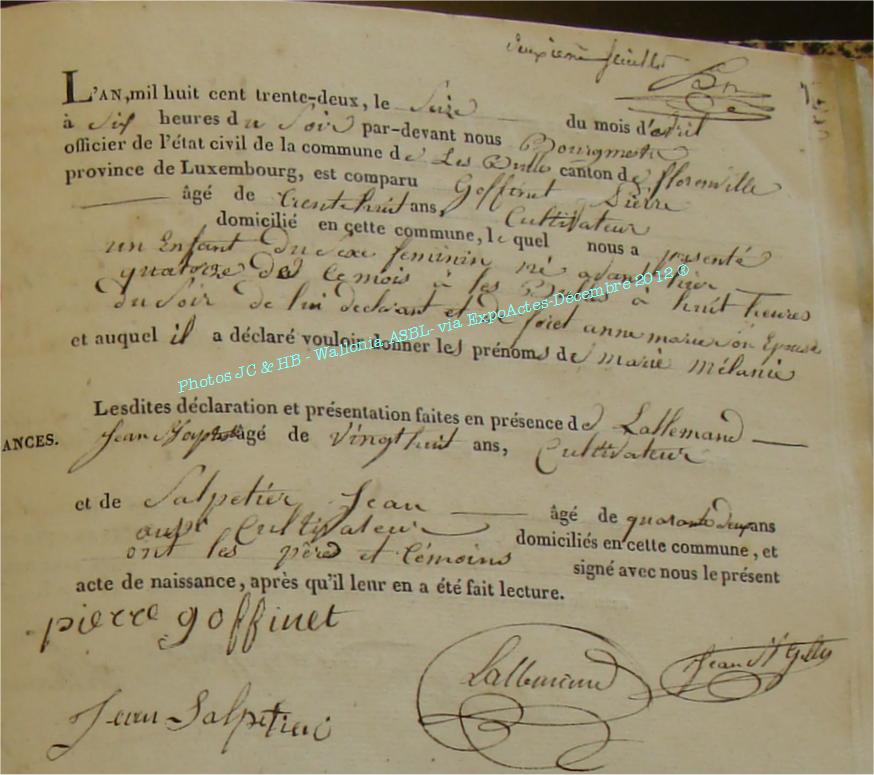 deuxième feuillet
L'AN, mil huit cent trente-deux, le Seize du mois d'avril
à Six heures du Soir par-devant nous Bourgmestre
officier de l'état civil de la commune de Les Bulles canton de florenville
province de Luxembourg, est comparu Goffinet Pierre
âgé de trente huit ans, Cultivateur
domicilié en cette commune, lequel nous a presenté
un Enfant du Sexe feminin né avant hier
quatorze de ce mois à les Bulles à huit heures
du Soir de lui déclarant et de foret anne marie son Epouse
et auquel il a déclaré vouloir donner les prénoms de marie mélanie
Lesdites déclaration et présentation faites en présence de Lallemand
ANCES. Jean âgé de Vingt huit ans, Cultivateur
et de Salpetier Jean âgé de quarante deux ans
aussi Cultivateur domiciliés en cette commune, et
ont les père et témoins signé avec nous le présent
acte de naissance, après qu'il leur en a été fait lecture.
pierre goffinet
Lallemand
Jean Salpetier
Photos JC & HB - Wallonia ASBL- via ExpoActes-Décembre 2012 ®